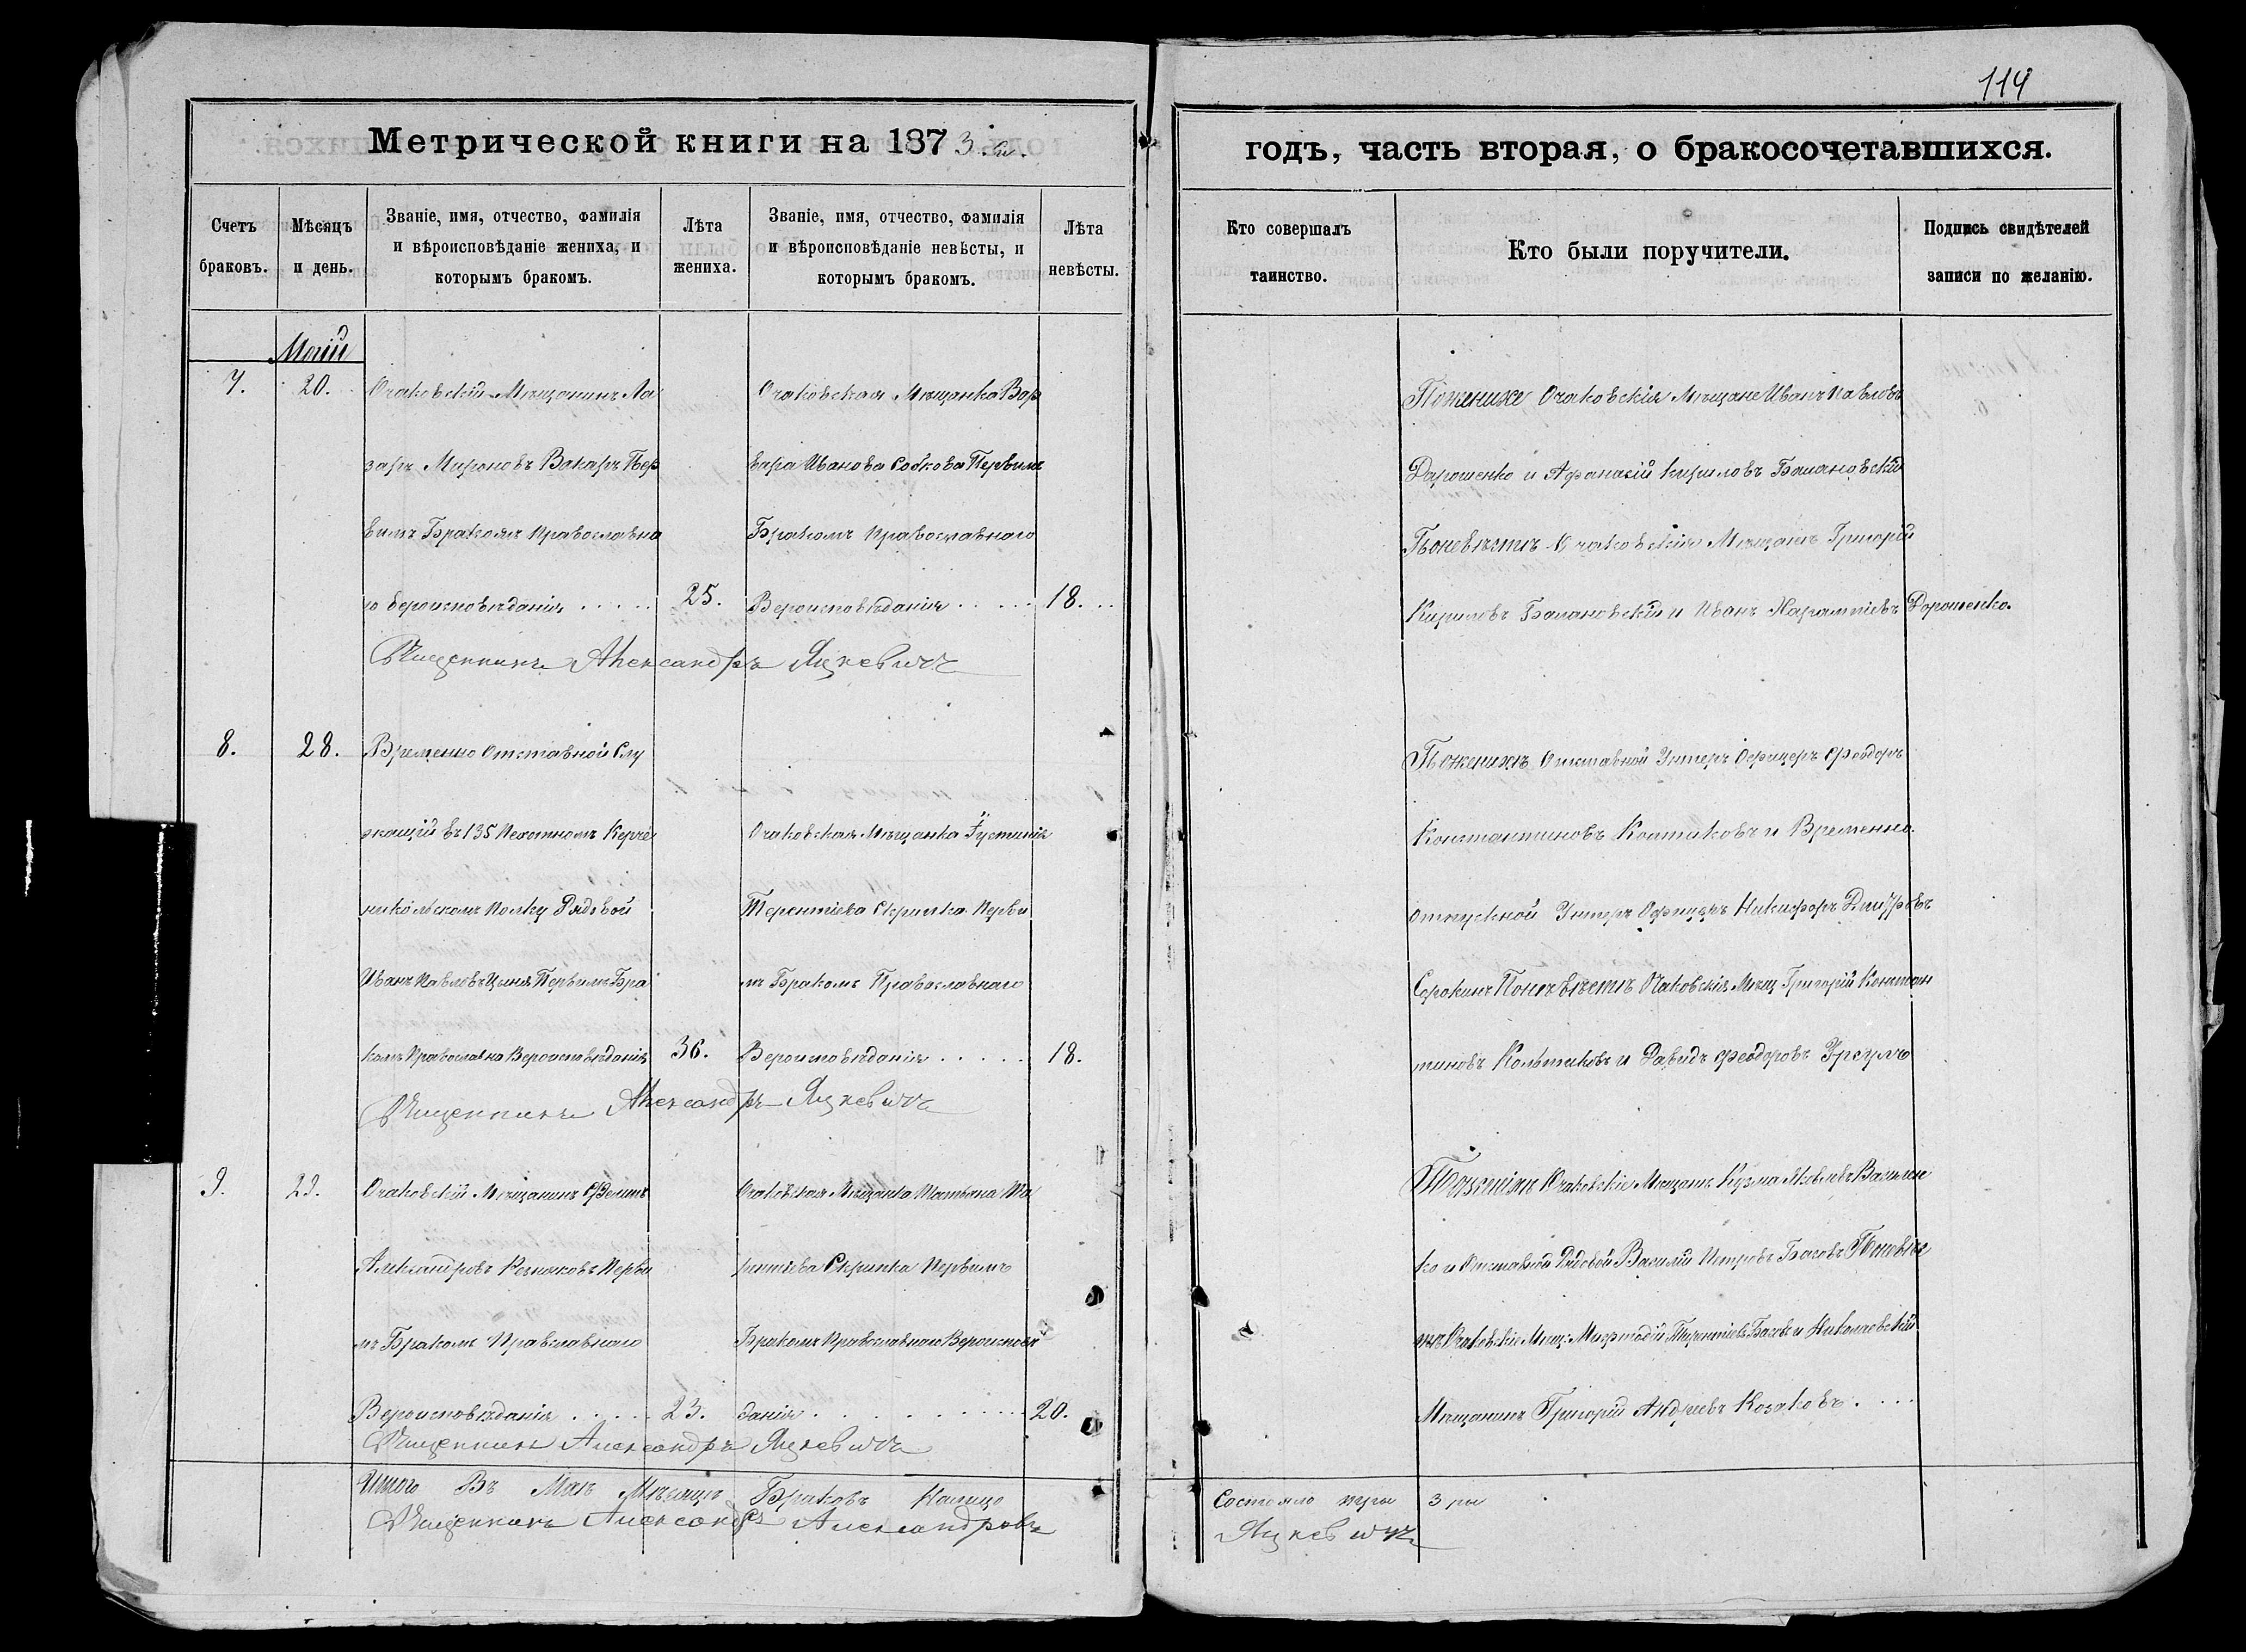 114
Метрической книги на 1873 й.
годъ, часть вторая, о бракосочетавшихся.
Счетъ браковъ.
Мѣсяцъ и день.
Званіе, имя, отчество, фамилія и вѣроисповѣданіе жениха, и которымъ бракомъ.
Лѣта жениха.
Званіе, имя, отчество, фамилія и вѣроисповѣданіе невѣсты, и которымъ бракомъ.
Лѣта невѣсты.
Кто совершалъ таинство.
Кто были поручители.
Подпись свидѣтелей записи по желанію.
Маій
7.
20.
Очаковскій Мѣщанинъ Ла
заръ Мироновъ Вакаръ Пер
вимъ Бракомъ Православна
го вероисповѣданія . . . . .
25.
Очаковская Мѣщанка Вар
вара Иванова Собкова Первимъ
Бракомъ Православнаго
Вероисповѣданія . . . . .
18. . .
Священникъ Александръ Яцкевичъ
Поженихе Очаковскія Мѣщане Иванъ Павловъ
Дарошенко и Афанасій Кириловъ Балановскій
Поневѣстѣ Очаковскія Мѣщанѣ Григорій
Кириловъ Балановскій и Иванъ Харампіевъ Дорошенко.
8.
28.
Временно Отставной Слу
жащій въ 135 Пехотномъ Керче
никольскомъ Полку Рядовой
Иванъ Павловъ Первимъ Бра
комъ Православна Вероисповѣданія
36.
Очаковская Мѣщанка Густинія
Терентіева Скрипка Перви
мъ Бракомъ Православнаго
Вероисповѣданія . . . . .
18.
Священникъ Александръ Яцкевичъ
Поженихѣ Отставной Унтеръ Офицеръ Феодоръ
Константиновъ Колтиковъ и Временно.
отпускной Унтеръ Офицеръ Никифоръ
Сорокинъ Поневѣстѣ Очаковскія Мѣщ Григорій Констан
тиновъ Колтиковъ и Давидъ Феодоровъ Урсулъ
9.
29.
Очаковскій Мѣщанинъ
Александровъ Перви
мъ Бракомъ Православнаго
Вероисповѣданія . . . . .
23.
Очаковская Мѣщанка Татьяна Те
рентіева Скрипка Первимъ
Бракомъ Православнаго Вероисповѣ
данія . . . . . . . .
20.
Священникъ Александръ Яцкевичъ
Поженіхѣ Очаковскіе Мѣщанѣ Кузма Яковлевъ Василен
ко и Отставной Рядовой Василій Петровъ Басовъ Поневѣс
тѣ Очаковскіе Мѣщ: Мифтодій Терентіевъ Басовъ и Николаевскій
Мѣщанинъ Григорій Андреевъ Козаковъ . . . .
Итого Въ Маѣ Мѣсяцѣ Браковъ Налицо
Состояло три 3 ри
Священникъ Александръ Александровъ
Яцкевичъ